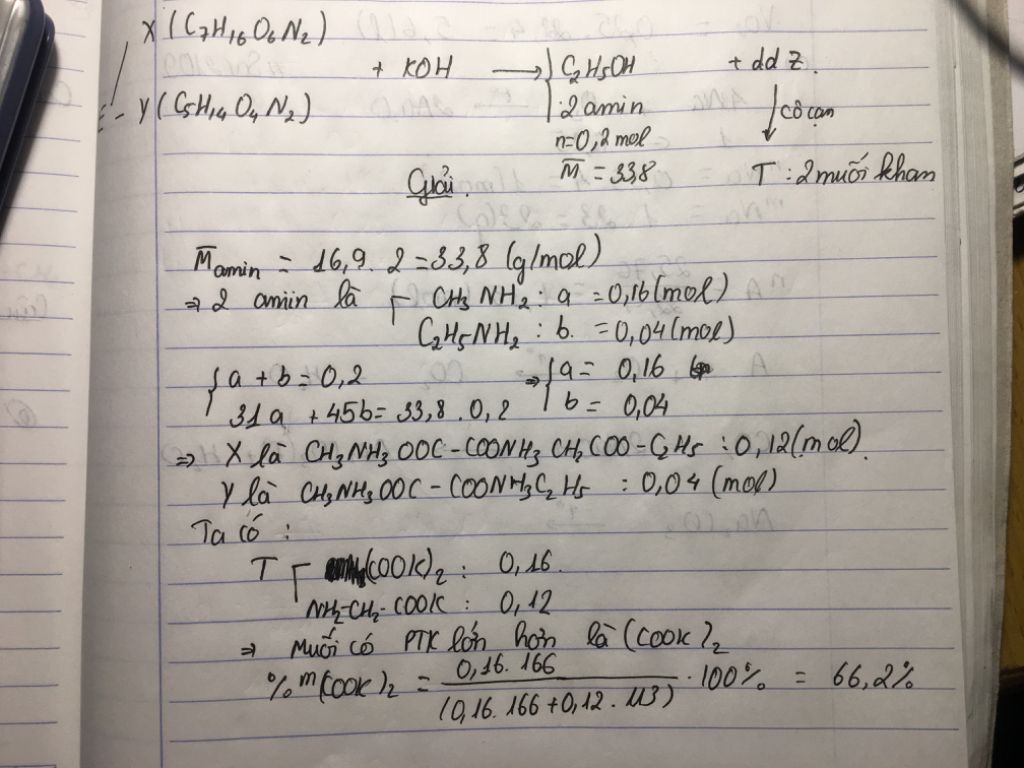 X (C7H16O6N2)
+ KOH → C2H5OH + dd Z.
Y (C5H14O4N2) 2 amin ↓ cô cạn
n=0,2 mol
M̅ = 33,8 T : 2 muối khan
Giải.
M̅amin = 16,9. 2 = 33,8 (g/mol)
⇒ 2 amin là CH3NH2 : a = 0,16 (mol)
C2H5NH2 : b. = 0,04 (mol)
{ a + b = 0,2 ⇒ { a = 0,16
31a + 45b = 33,8 . 0,2 b = 0,04
⇒ X là CH3NH3OOC - COONH3CH2COO - C2H5 : 0,12 (mol).
Y là CH3NH3OOC - COONH3C2H5 : 0,04 (mol)
Ta có :
T (COOK)2 : 0,16.
NH2-CH2-COOK : 0,12
⇒ Muối có PTK lớn hơn là (COOK)2
%m(COOK)2 = 0,16. 166 / (0,16. 166 + 0,12 . 113) . 100% = 66,2%